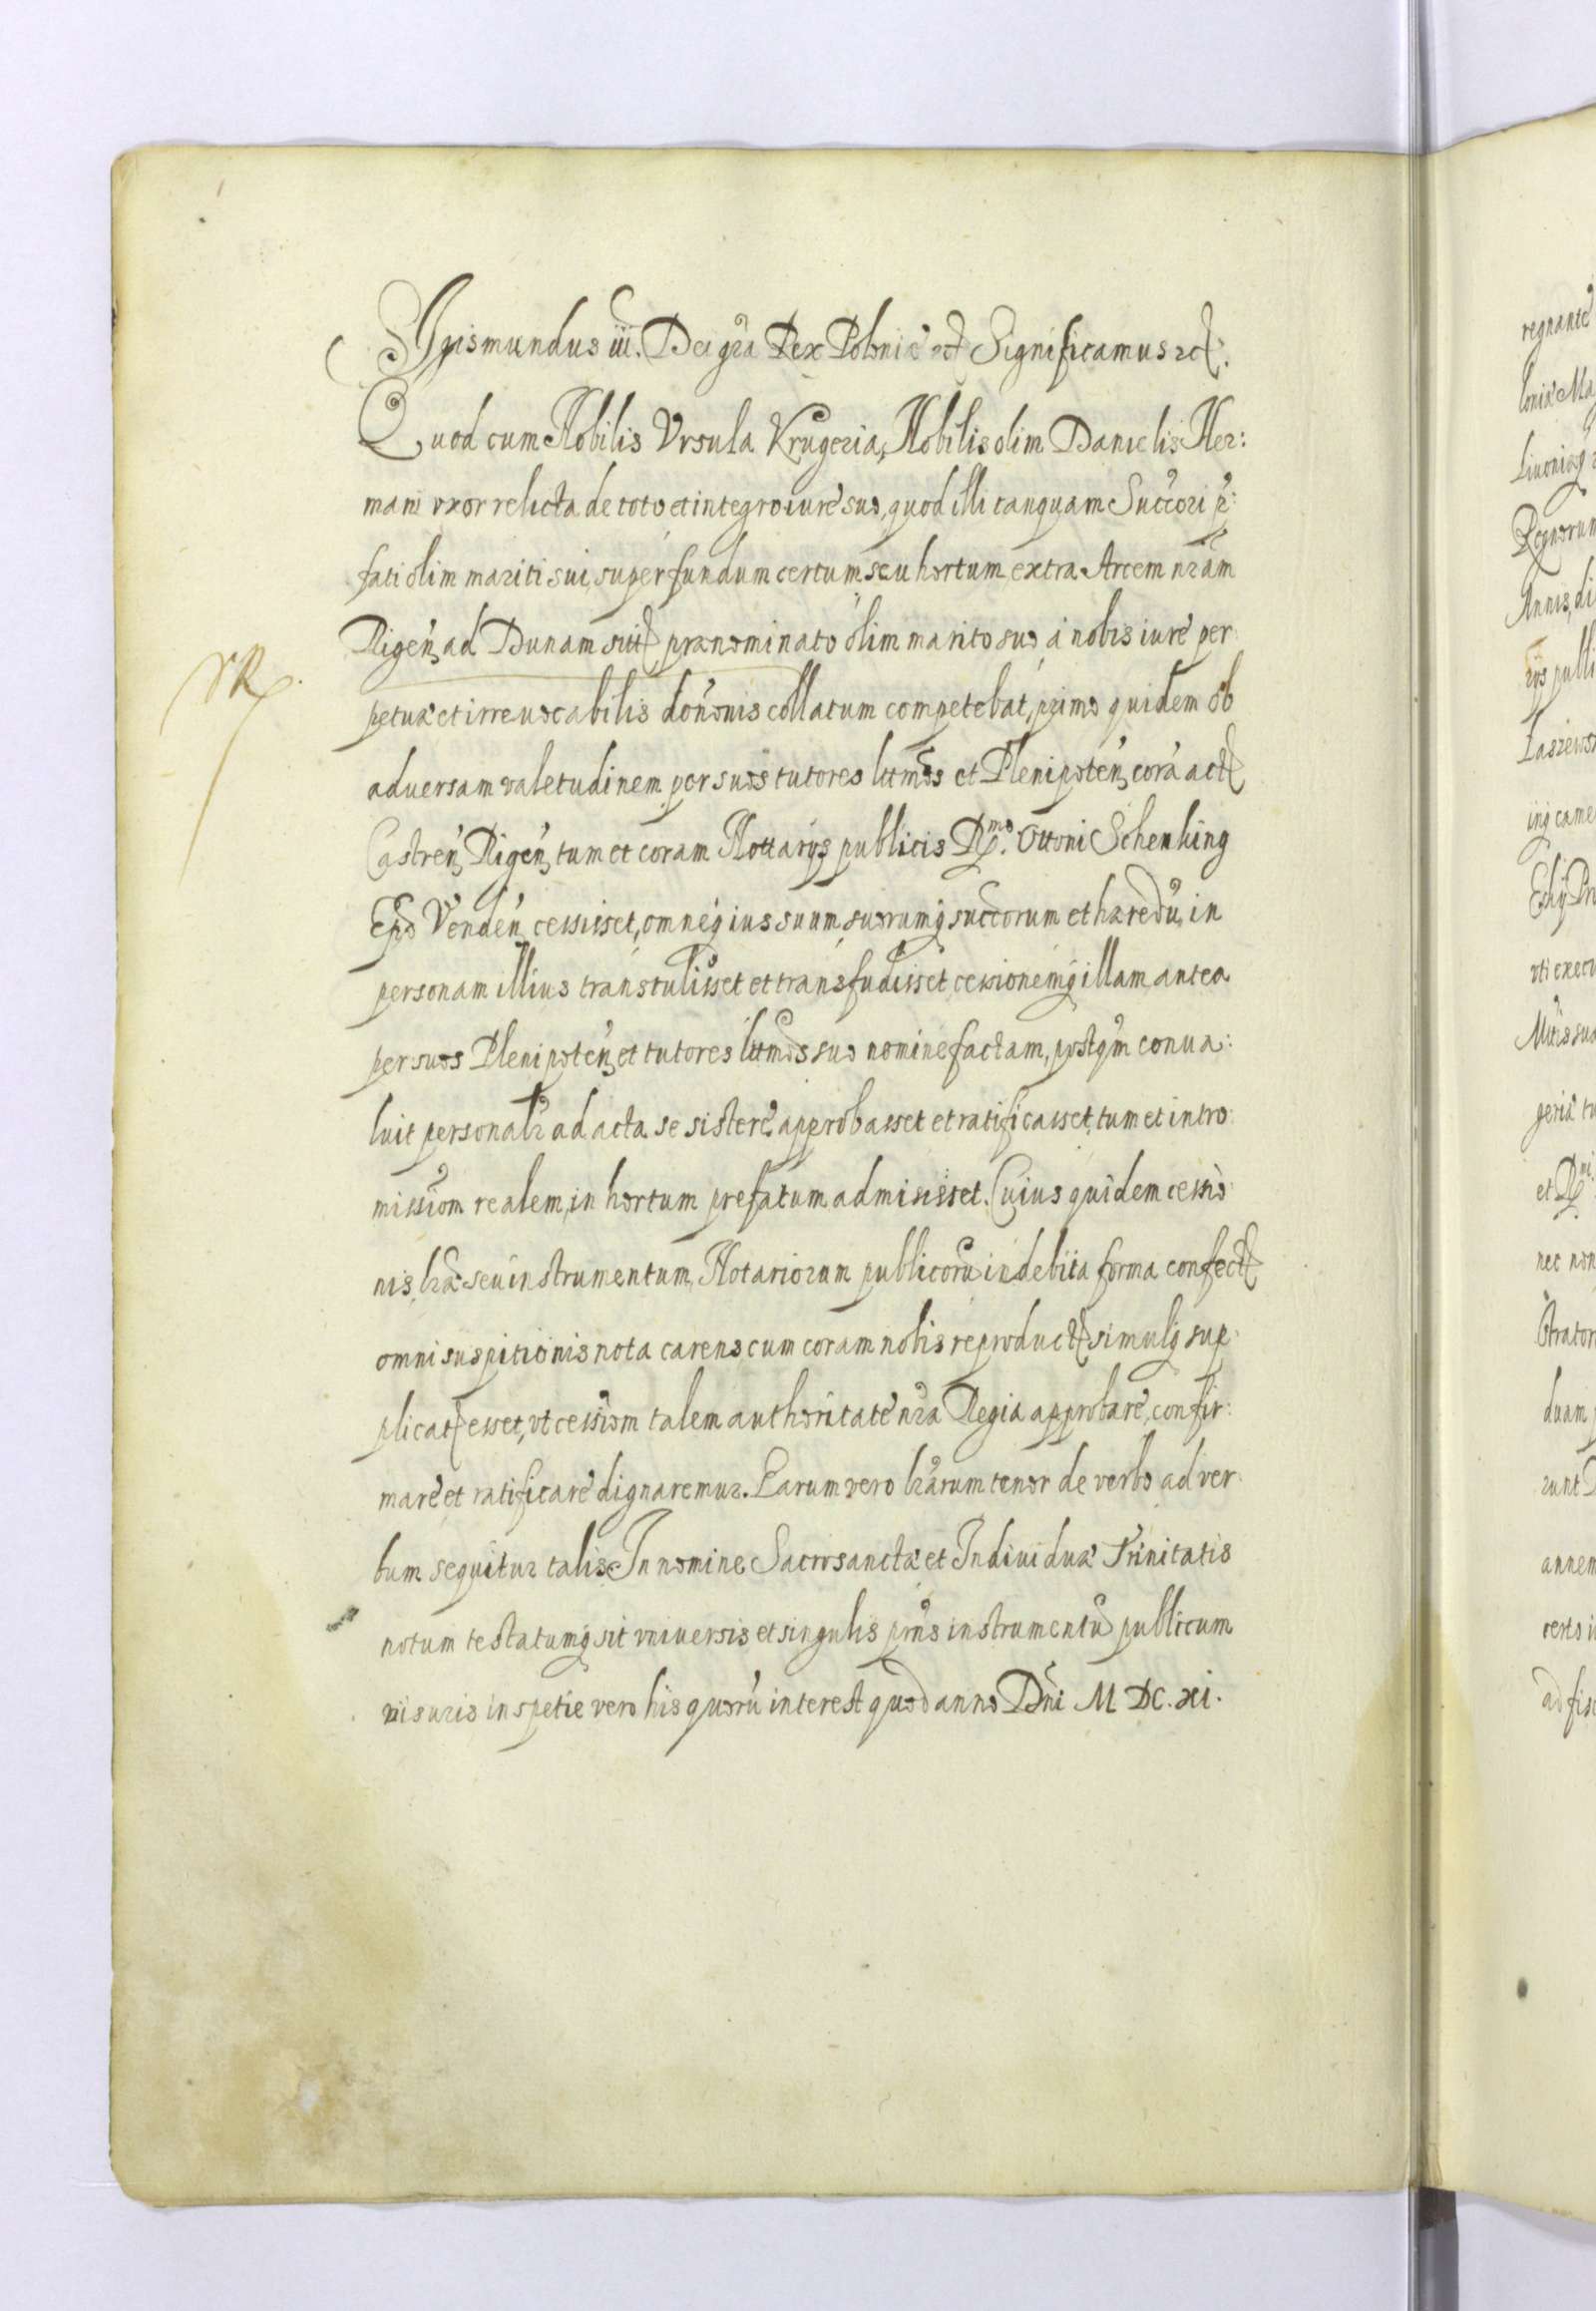 Sigismundus iii. Dei gra Rex Poloniæ etc Significamus etc.
Quod cum Nobilis Vrsula Krugeria, Nobilis olim Danielis Her:
mani vxor relicta de toto et integro iure suo, quod illi tanquam Succori p:
fati olim mariti sui, super fundum certum seu hortum extra Arcem nram
Rigen ad Dunam sitt prænominato olim marito suo a nobis iure per
petuæ et irreuocabilis dononis collatum competebat, primo quidem ob
aduersam valetudinem per suos tutores lttmos et Plenipoten, cora act
Castren Rigen tum et coram Nottarys publicis Rmo. Ottoni Schenking
Epo Venden cessisset, omneq ius suum suorumq succorum et hæredu in
personam illius transtulisset et transfudisset cessionemq illam antea
per suos Plenipoten et tutores lttmos suo nomine factam, postqm conua:
luit personalr ad acta se sistere approbasset et ratificasset, tum et intro
missiom realem in hortum prefatum admisisset. Cuius quidem cessio
nis lræ seu instrumentum Notariorum publicoru in debita forma confect
omni suspitionis nota carens cum coram nobis reproduct simulq sup
plicat esset, vt cessiom talem authoritate nra Regia approbare, confir:
mare et ratificare dignaremur. Earum vero lrarum tenor de verbo ad ver
bum sequitur talis In nomine Sacrosanctæ et Indiuiduæ Trinitatis
notum testatumq sit vniuersis et singulis prns instrumentu publicum
visuris in spetie vero his quoru interest quod anno Dni M DC. xi.
regnante
loniæ Ma
Regnorum
Annis, di
rys publi
ing came
vti execu
geriæ tu
nec non
Strator
duam p
annem
certo i
ad fisc